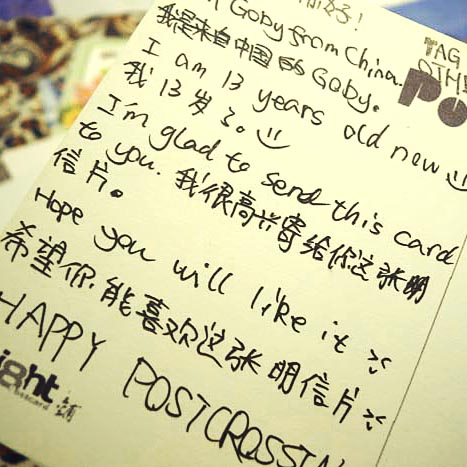 你好!
Goby from China.
我是来自中国的Goby。
I am 13 years old now
我13岁了。
I'm glad to send this card
to you. 我很高兴寄给你这张明
信片。
Hope you will like it
希望你能喜欢这张明信片
HAPPY POSTCROSSIN
TAG